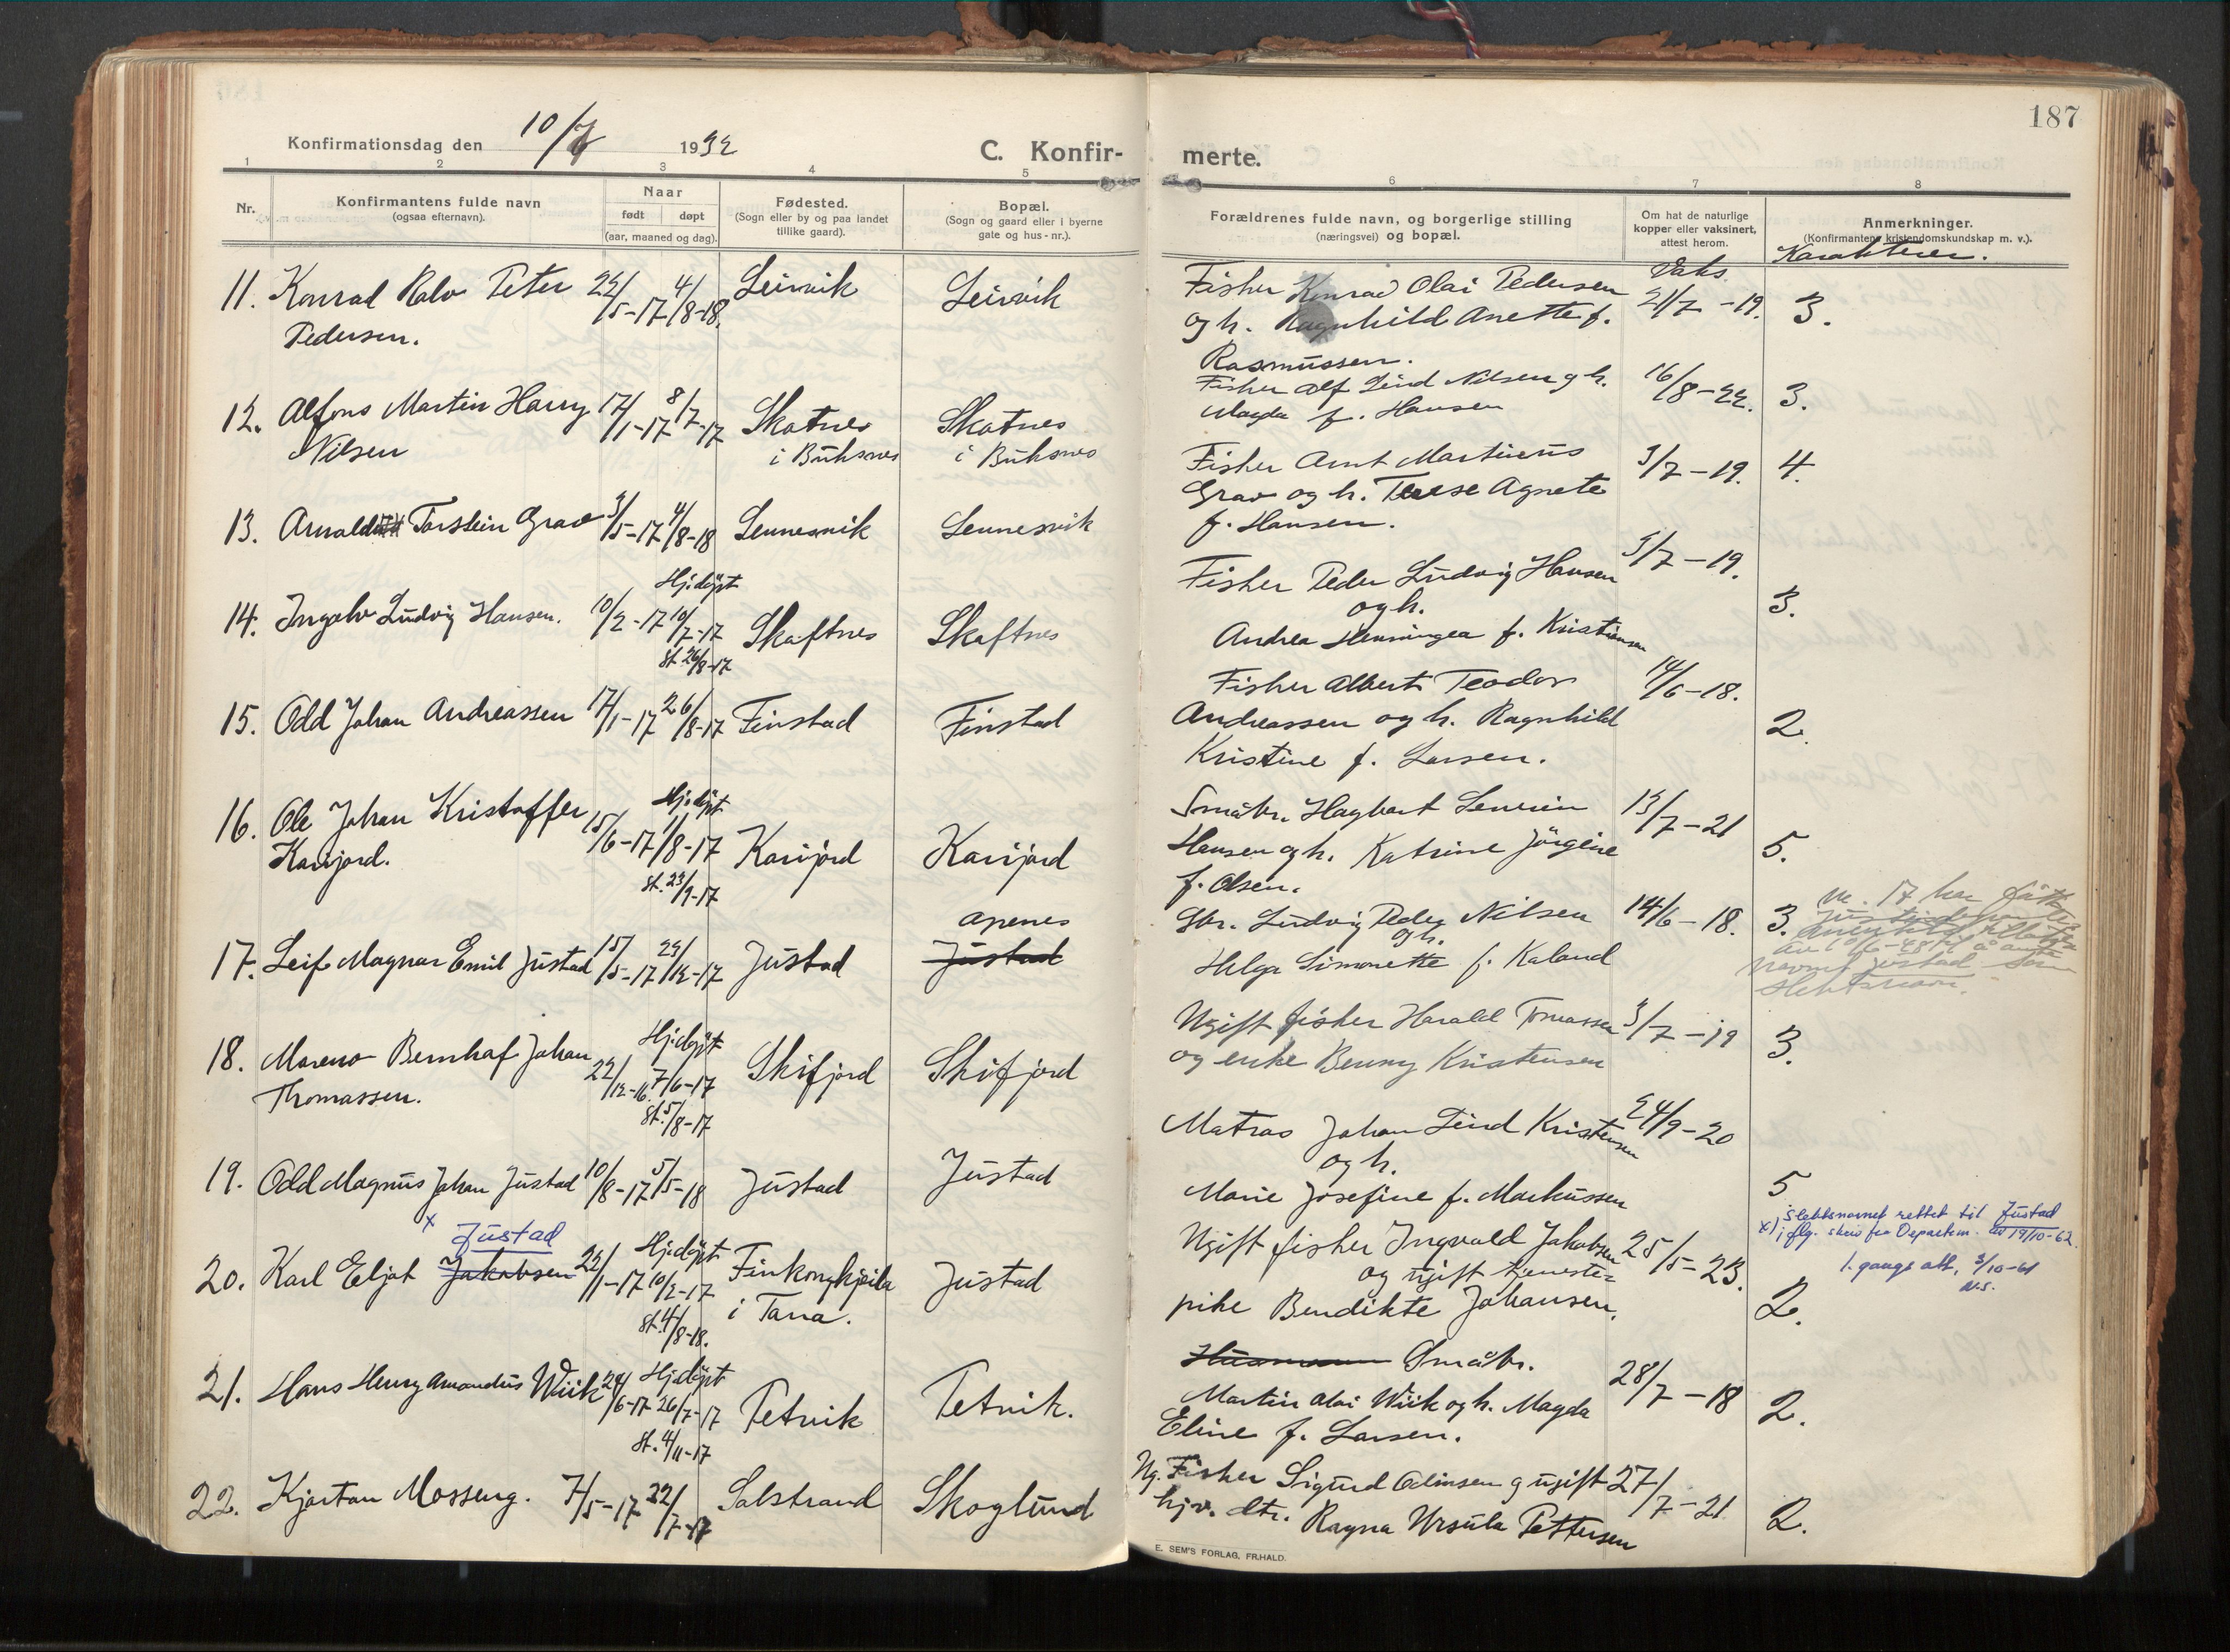 187
Konfirmationsdag den 10/7 1932
C. Konfir-
merte.
1 2 3 4 5 6 7 8
Nr.
Konfirmantens fulde navn
(ogsaa efternavn).
Naar
født døpt
(aar, maaned og dag).
Fødested.
(Sogn eller by og paa landet
tillike gaard).
Bopæl.
(Sogn og gaard eller i byerne
gate og hus-nr.).
Forældrenes fulde navn, og borgerlige stilling
(næringsvei) og bopæl.
Om hat de naturlige
kopper eller vaksinert,
attest herom.
Anmerkninger.
(Konfirmantens kristendomskundskap m. v.).
Karakterer.
Vaks.
11. Konrad Rolv Peter 22/5-17 4/8-18. Leirvik Leirvik
Pedersen.
Fisker Konrad Olai Pedersen 21/7-19. 3.
og h. Ragnhild Anette f.
Rasmussen.
12. Alfons Martin Harry 17/1-17 8/7-17 Skotnes Skotnes
Nilsen i Buksnes i Buksnes
Fisker Alf Lind Nilsen og h. 16/8-22. 3.
Magda f. Hansen
13. Arnald Torstein Grav 3/5-17 4/8-18 Sennesvik Sennesvik
Fisker Arnt Martinus 3/7-19. 4.
Grav og h. Terese Agnete
f. Hansen.
14. Ingolv Ludvig Hansen. 10/2-17 Hj.døpt 10/7-17 st. 26/8-17 Skaftnes Skaftnes
Fisker Peder Ludvig Hansen 3/7-19. 3.
og h.
Andrea Henningea f. Kristiansen
15. Odd Johan Andreassen 17/1-17 26/8-17 Finstad Finstad
Fisker Albert Teodor 14/6-18. 2.
Andreassen og h. Ragnhild
Kristine f. Larsen.
16. Ole Johan Kristoffer 15/6-17 Hj.døpt 1/8-17 st. 23/9-17 Karijord Karijord
Karijord.
Småbr. Hagbart Severin 13/7-21 5.
Hansen og h. Katrine Jörgine
f. Olsen.
17. Leif Magnar Emil Justad 15/5-17 29/12-17 Justad Apenes
Justad
Gbr. Ludvig Peder Nilsen 14/6-18. 3.
og h.
Helga Simonette f. Kaland
Nr. 17 har fått
av 10/6-48 til å anta
navnet Justad som
slektsnavn.
18. Mareno Bernhof Johan 22/12-16 Hj.døpt 7/6-17 st. 5/8-17 Skifjord Skifjord
Thomassen.
Ugift fisker Harald Tomassen 3/7-19 3.
og enke Benny Kristensen
19. Odd Magnus Johan Justad 10/8-17 5/5-18 Justad Justad
Matros Johan Lind Kristensen 24/9-20 5
og h.
Marie Josefine f. Markussen
x Justad
20. Karl Eljot Jakobsen 22/1-17 Hj.døpt 10/2-17 st. 4/8-18. Finkongkjeila Justad
i Tana.
Ugift fisker Ingvald Jakobsen 25/5-23. 2.
og ugift tjeneste=
pike Bendikte Johansen.
x) Slektsnavnet rettet til Justad
iflg. skriv fra Departem. av 19/10-62.
1. gangs att. 3/10-61
N.S.
21. Hans Henry Amandus Wiik 24/6-17 Hj.døpt 26/7-17 st. 4/11-17 Petvik Petvik.
Husmann Småbr. 28/7-18 2.
Martin Olai Wiik og h. Magda
Eline f. Larsen.
22. Kjartan Mosseng. 7/5-17 22/7-17 Solstrand Skoglund
Ug. Fisker Sigurd Odinsen og ugift 27/7-21 2.
hjv. dtr. Ragna Ursula Pettersen
E. SEM'S FORLAG, FR.HALD.